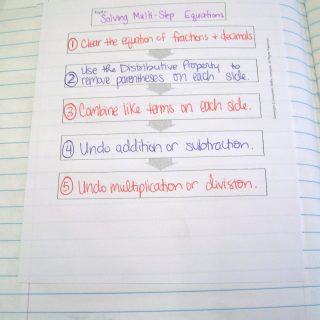 Topic:
Solving Multi-Step Equations
① Clear the equation of fractions + decimals.
② Use the Distributive Property to
remove parentheses on each side.
③ Combine like terms on each side.
④ Undo addition or subtraction.
⑤ Undo multiplication or division.